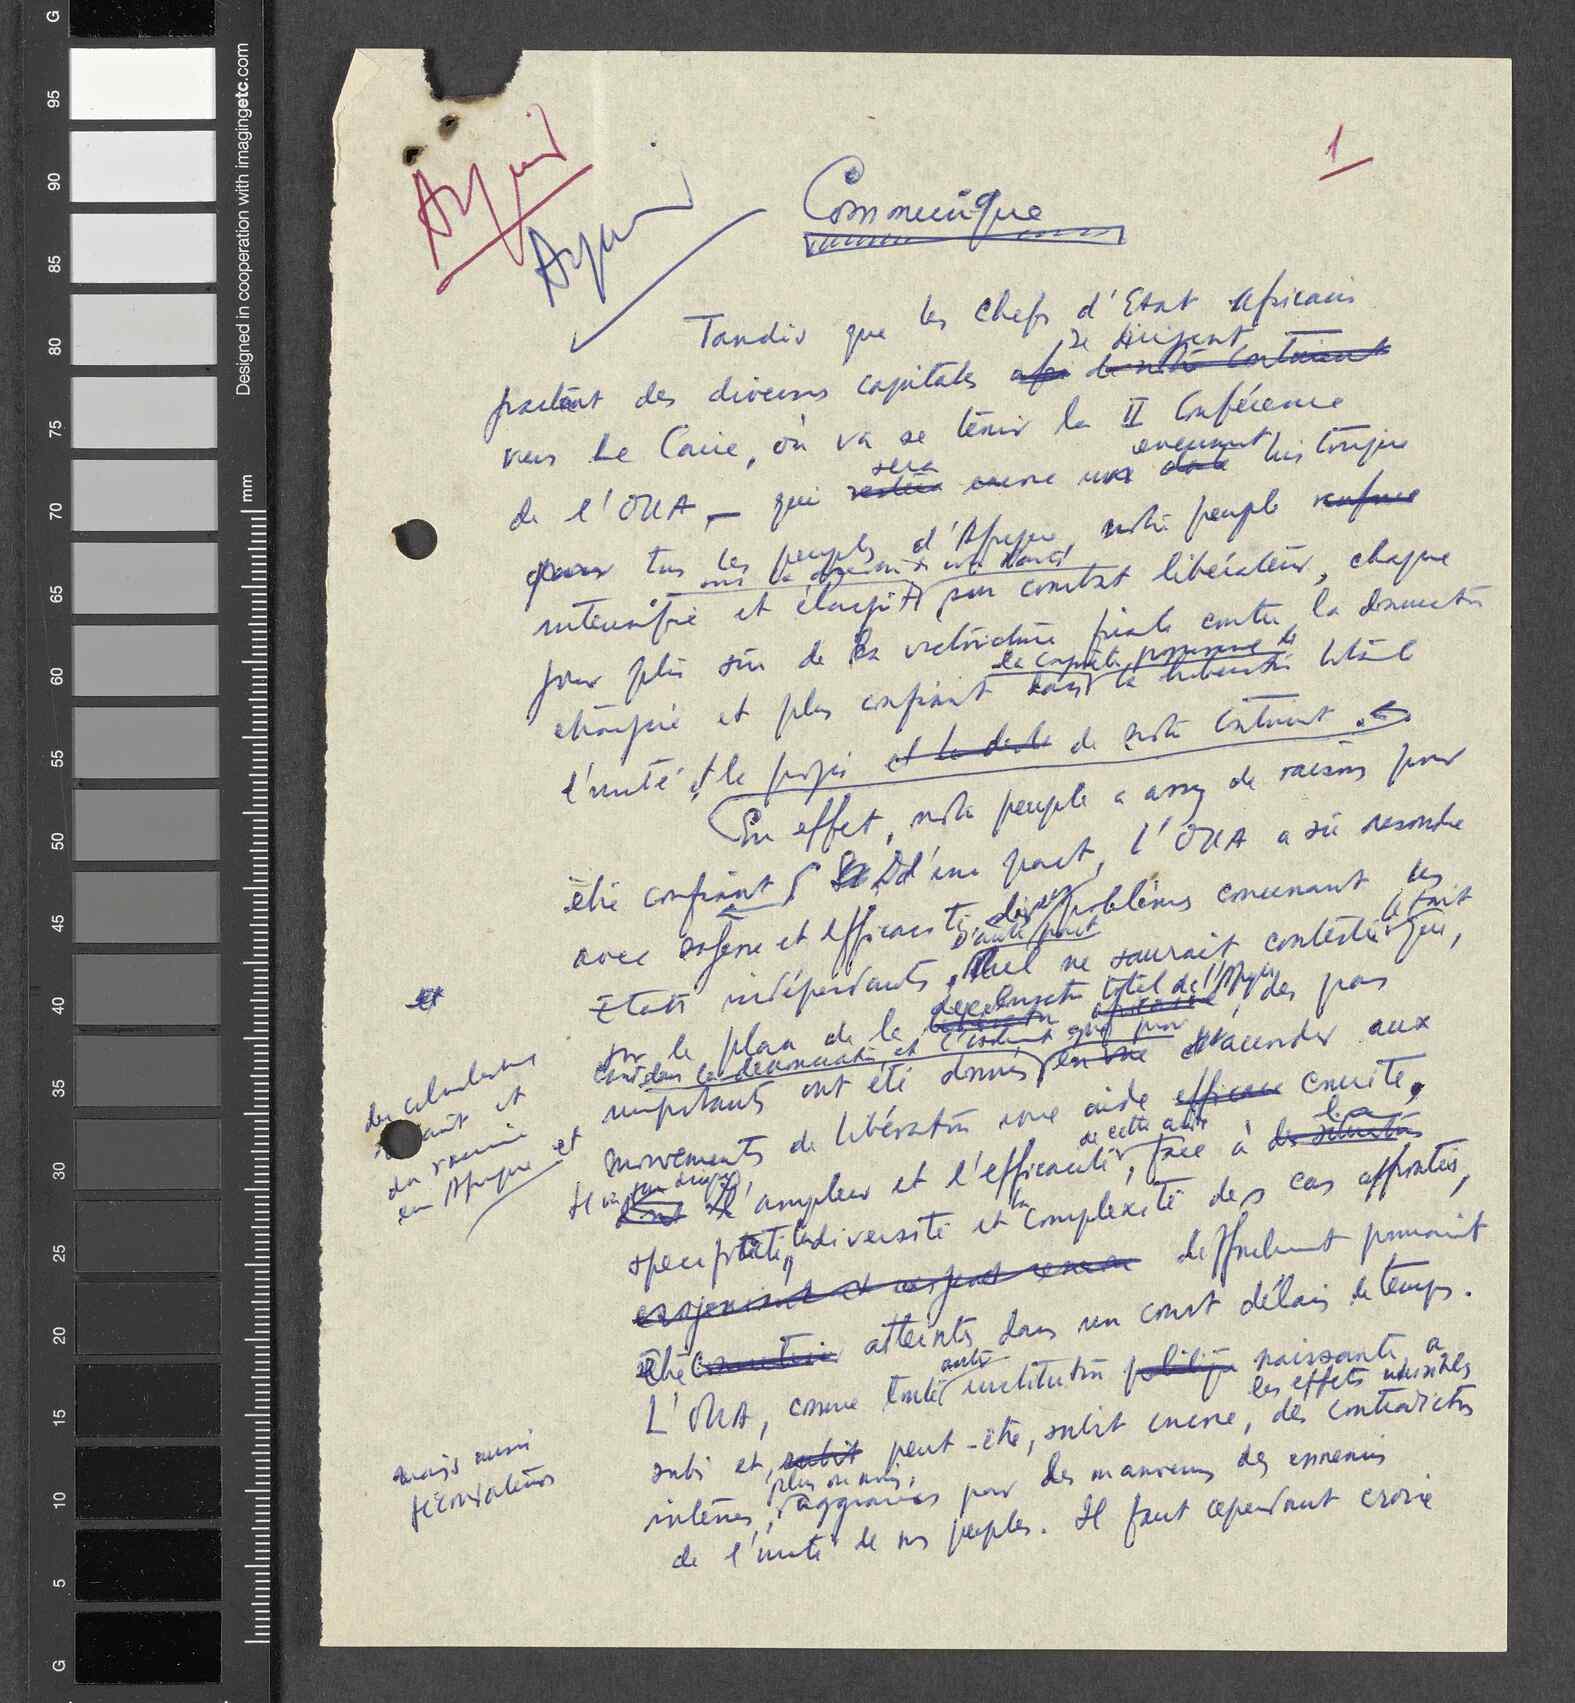 G
95
90
85
80
75
70
65
60
55
50
45
40
35
30
25
20
15
10
5
G
Designed in cooperation with imagingetc.com
mm
1
Communique
Tandis que les chefs d'Etat Africains
se dirigent
partent des diverses capitales de notre continent
vers Le Caire, où va se tenir la II Conférence
sera evenement
de l'OUA — qui restera encore une date historique
pour tus les peuples d'Afrique, notre peuple renforce
intensifie et élargit son combat libérateur, chaque
jour plus sûr de la victoire finale contre la domination
etrangère et plus confiant dans la libération totale
l'unité et le progrès de notre continent.
En effet, notre peuple a assez de raisons pour
être confiant D'une part, l'OUA a sû resoudre
avec sagesse et efficacité problèmes concernant les
D'autre part le fait
Etats indépendants, Nul ne saurait contester que,
decolonisation total de l'Afrique
sur le plan de la libération africaine, des pas
importants ont été donnés accorder aux
mouvements de libération une aide efficace concrète.
de cette aide la
l'ampleur et l'efficacité, face à
specificité, la diversité et la complexité des cas affrontés,
difficilement pouvaient
être atteints dans un court délais de temps.
autre
L'OUA, comme toute institution politique naissante, a
les effets nuisibles
subi et, subit peut-être, subit encore, des contradictions
plus ou moins
internes, aggravées par des manœuvres des ennemis
de l'unité de nos peuples. Il faut cependant croire
et
du colonialisme
et
du racisme
en Afrique et
mais aussi